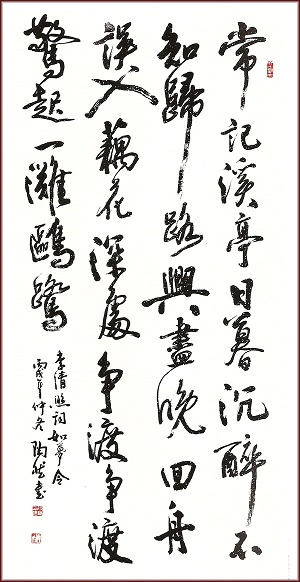 常記溪亭日暮沉醉不
知歸路興盡晚回舟
誤入藕花深處争渡争渡
驚起一灘鷗鷺
李清照詞如夢令
丙戌年仲冬陶然書